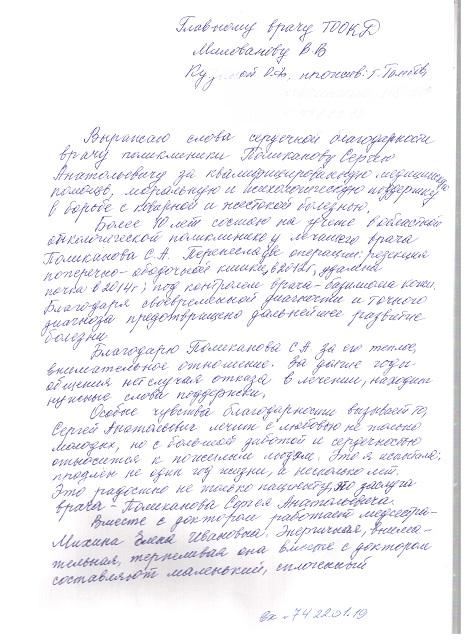 Главному врачу ТООКД
Милованову В.В
Куд ой О.Ф. прожив: г. Тамбов,
Выражаю слова сердечной благодарности
врачу поликлиники Поликанову Сергею
Анатольевичу за квалифицированную медицинскую
помощь, моральную и психологическую поддержку
в борьбе с коварной и жестокой болезнью.
Более 10 лет состою на учете в областной
онкологической поликлинике у лечащего врача
Поликанова С.А. Перенесла две операции: резекция
поперечно-ободочной кишки, удалена
почка в 2014г; под контролем врача
Благодаря своевременной диагностики и точного
диагноза предотвращено дальнейшее развитие
болезни
Благодарю Поликанова С.А за его теплое,
внимательное отношение. За долгие годы
общения нет случая отказа в лечении, находит
нужные слова поддержки.
Особые чувства благодарности вызывает то,
Сергей Анатольевич лечит с любовью не только
молодых, но с большой заботой и сердечностью
относится к пожилым людям. Это я испытала;
продлен не один год жизни, а несколько лет.
Это радостно не только пациенту, то заслуга
врача - Поликанова Сергея Анатольевича.
Вместе с доктором работает медсестра-
Михина Елена Ивановна. Энергичная, внима-
тельная, терпеливая она вместе с доктором
составляют маленький, сплоченный
вх №74 22.01.19